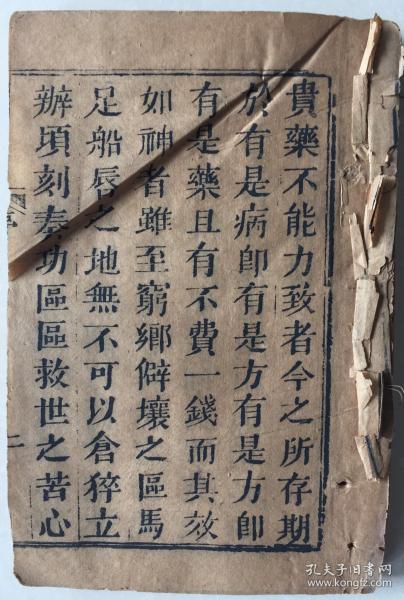 貴藥不能力致者今之所存期
於有是病即有是方有是方即
有是藥且有不費一錢而其效
如神者雖至窮鄉僻壤之區馬
足船唇之地無不可以倉猝立
辦頃刻奏功區區救世之苦心
序
二
孔夫子旧书网
www.kongfz.com